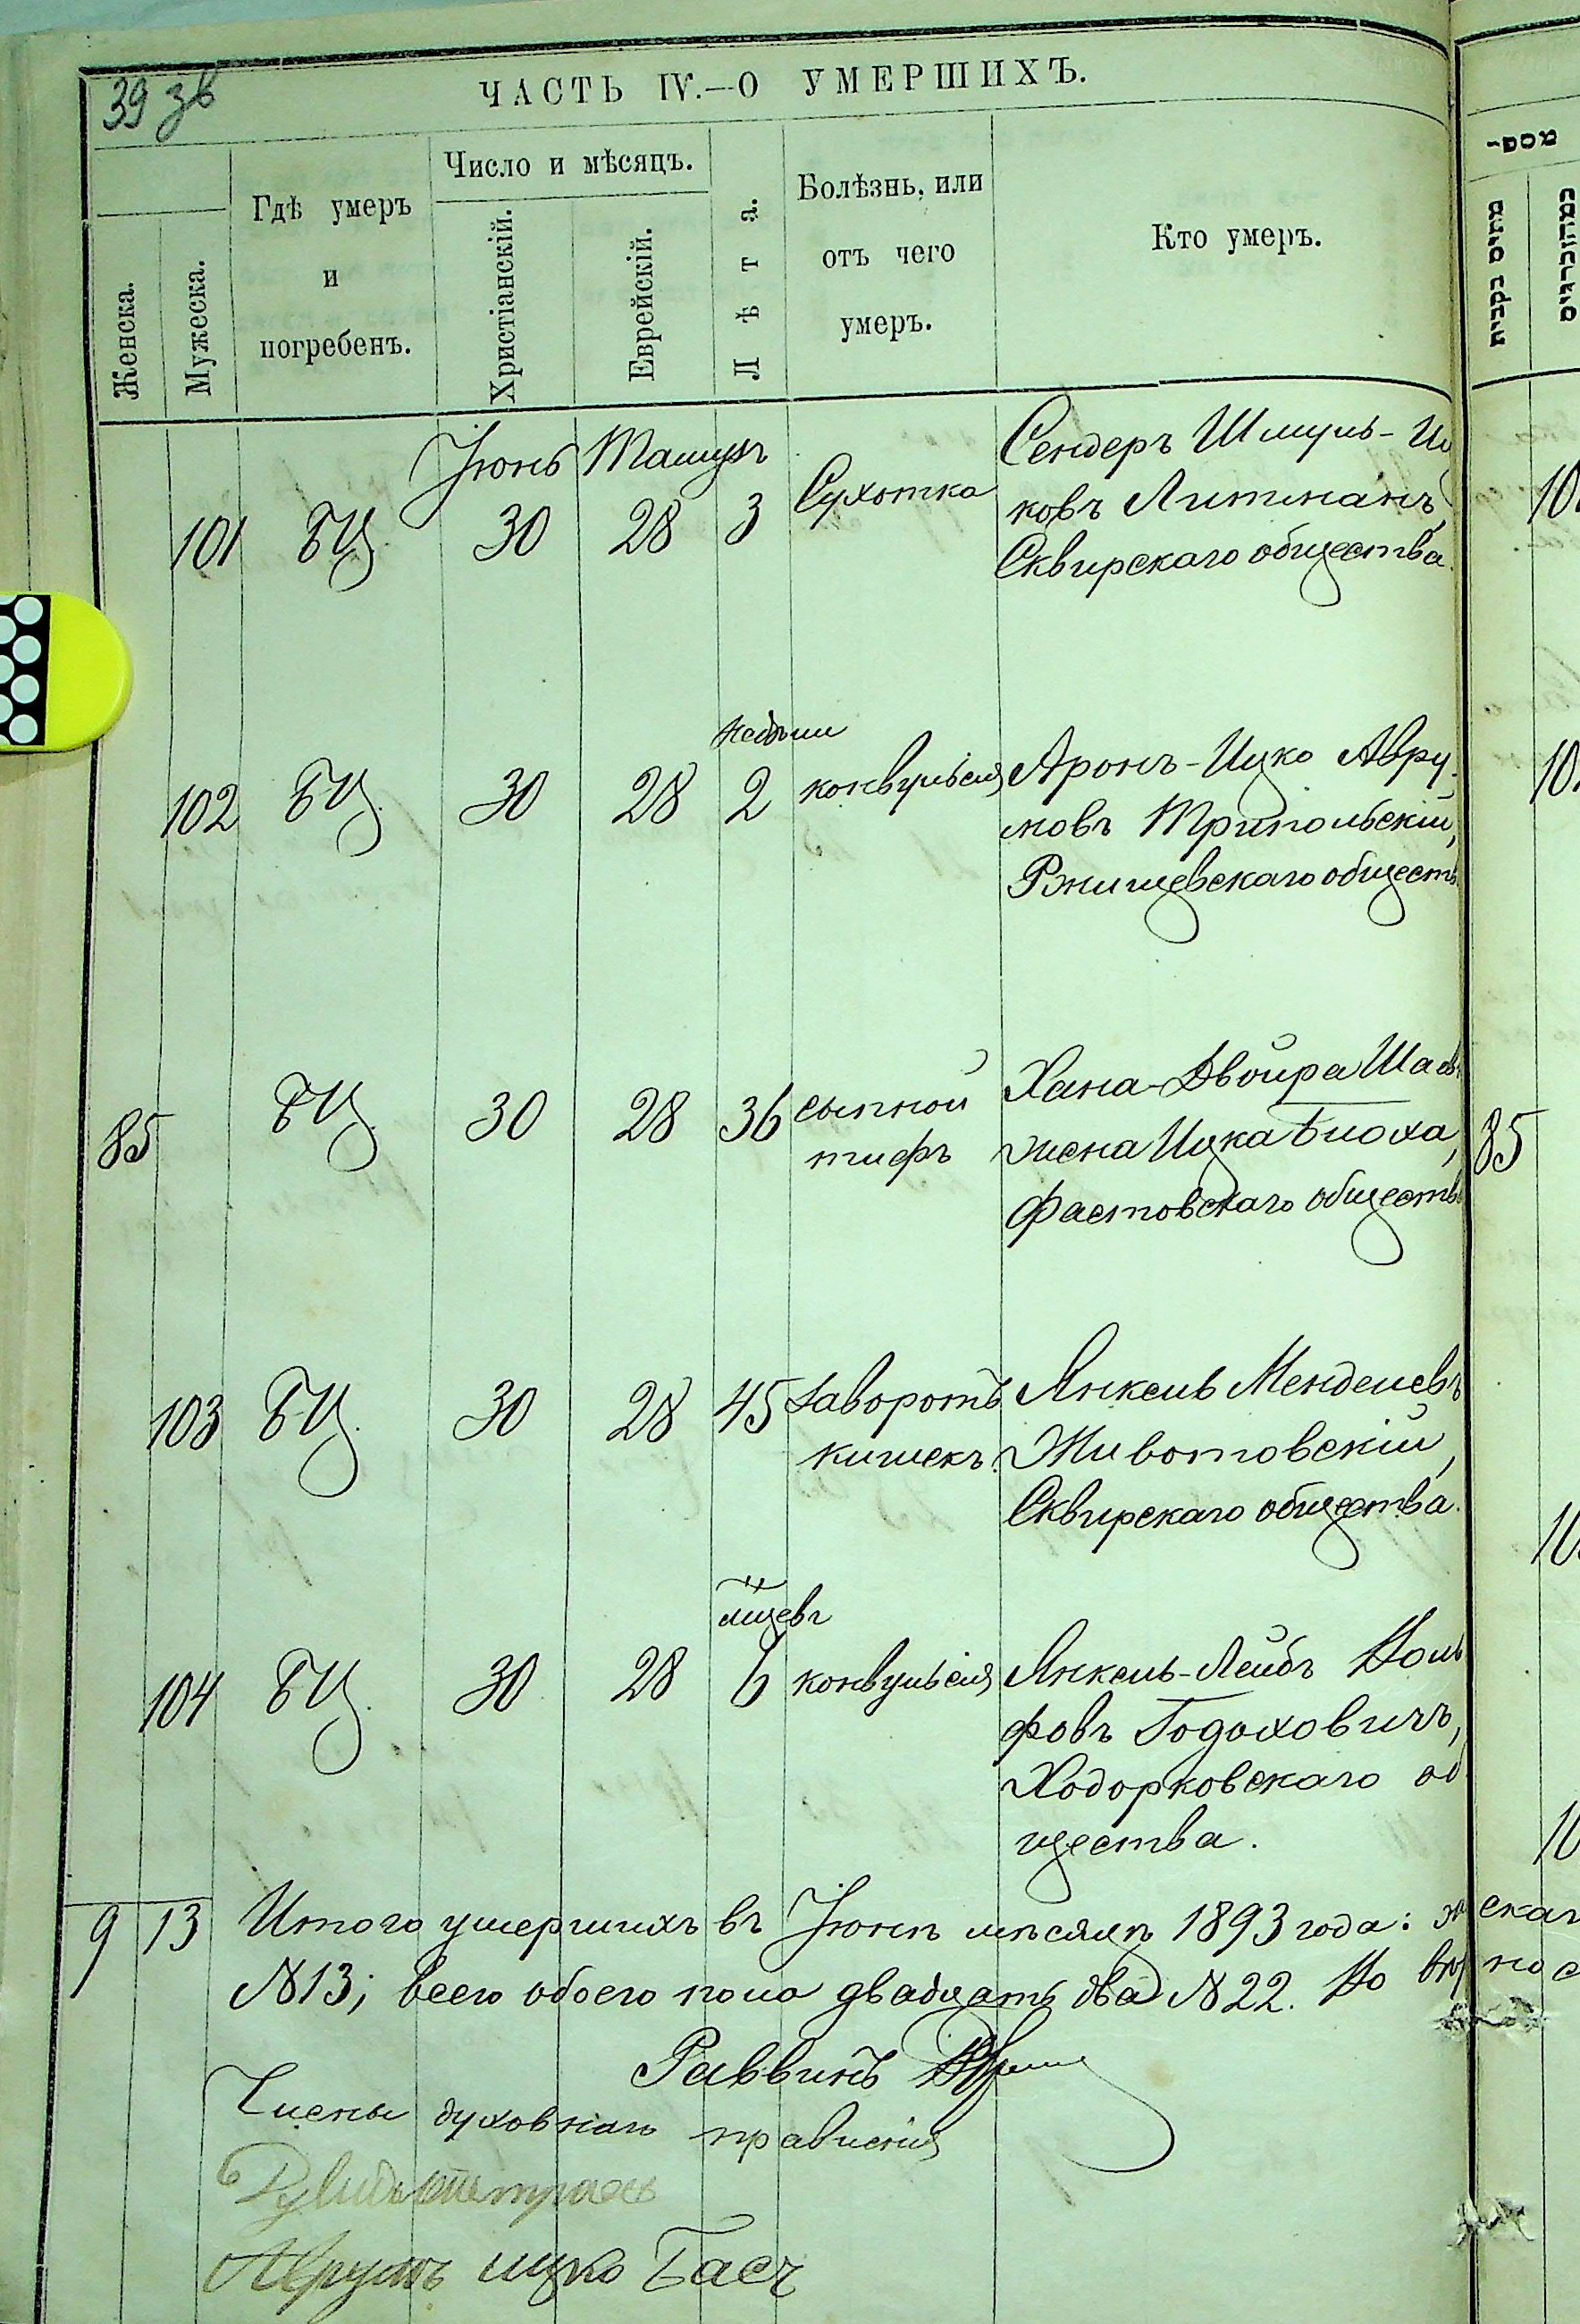 39 зв
ЧАСТЬ IV.—О УМЕРШИХЪ.
Женска.
Мужеска.
Гдѣ умеръ
и
погребенъ.
Число и мѣсяцъ.
Христіанскій.
Еврейскій.
Лѣта.
Болѣзнь, или
отъ чего
умеръ.
Кто умеръ.
Іюнь Тамузъ
101 БЦ. 30 28 3 Сухотка Сендеръ Шмуль-Иц
ковъ Литманъ,
Сквирскаго общества.
недѣли
102 БЦ. 30 28 2 конвульсія Аронъ-Ицко Авру-
мовъ Трипольскій,
Ржищевскаго обществ
85 БЦ. 30 28 36 сыпной Хана-Двойра Шаев
тифъ жена Ицка Блоха,
Фастовскаго обществ
103 БЦ. 30 28 45 Заворотъ Янкель Менделевъ
кишекъ. Животовскій,
Сквирскаго общества.
мѣсяцевъ
104 БЦ. 30 28 6 конвульсія Янкель-Лейбъ Воль
фовъ Годоховичъ,
Ходорковскаго об
щества.
9 13 Итого умершихъ въ Іюнѣ мѣсяцѣ 1893 года: ж
№13; всего обоего пола двадцать два №22. Во вѣр
Раввинъ
Члены духовнаго правленія
Аврумъ ицко Басъ
85